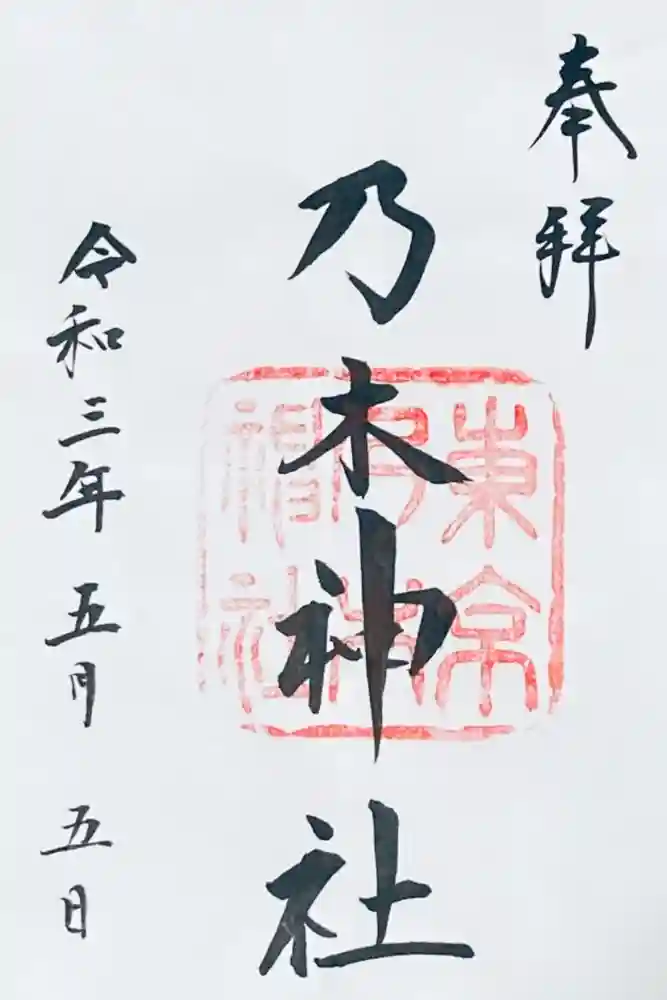 奉拝
乃木神社
東京乃木神社
令和三年五月五日